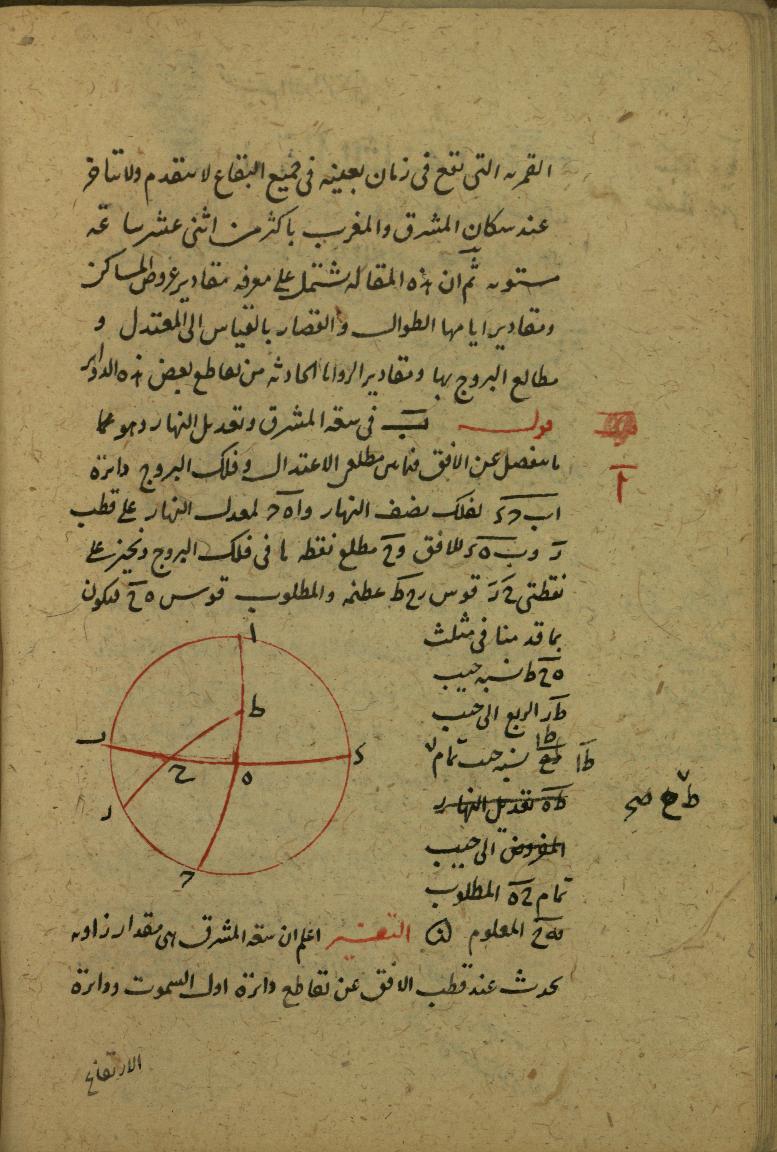 القمريه التى تقع فى زمان بعينه فى جميع البقاع لا يتقدم ولا يتاخر
عند سكان المشرق والمغرب باكثر من اثنى عشر ساعه
مستويه ثم ان هذه المقاله يشتمل على معرفه مقادير عروض المساكن
ومقادير ايامها الطوال والقصار بالقياس الى المعتدل و
مطالع البروج بها ومقادير الزوايا الحادثه من تقاطع بعض هذه الدواير
قوله ب فى سعه المشرق وتعديل النهار وهو مما
ا
ينفصل عن الافق فيما بين مطلعى الاعتدال وفلك البروج دايرة
ا ب ح د لفلك نصف النهار و ا ه ح لمعدل النهار على قطب
ز و ب ه د للافق و ح مطلع نقطه ما فى فلك البروج ونجيز على
نقطتى ح ز قوس ز ح ط عظيمه والمطلوب قوس ه ح فيكون
بما قدمنا فى مثلث
ه ح ط نسبه جيب
ط ز الربع الى جيب
ط ا
ط ا نسبه جيب تمام
ط ح صح
ط ه تعديل النهار
المفروض الى جيب
تمام ح ه المطلوب
المعلوم التفسير اعلم ان سعه المشرق هى مقدار زاويه
يحدث عند قطب الافق عن تقاطع دايرة اول السموت ودايرة
الارتفاع
ا
ط
ب
ح
ه
د
ز
ح